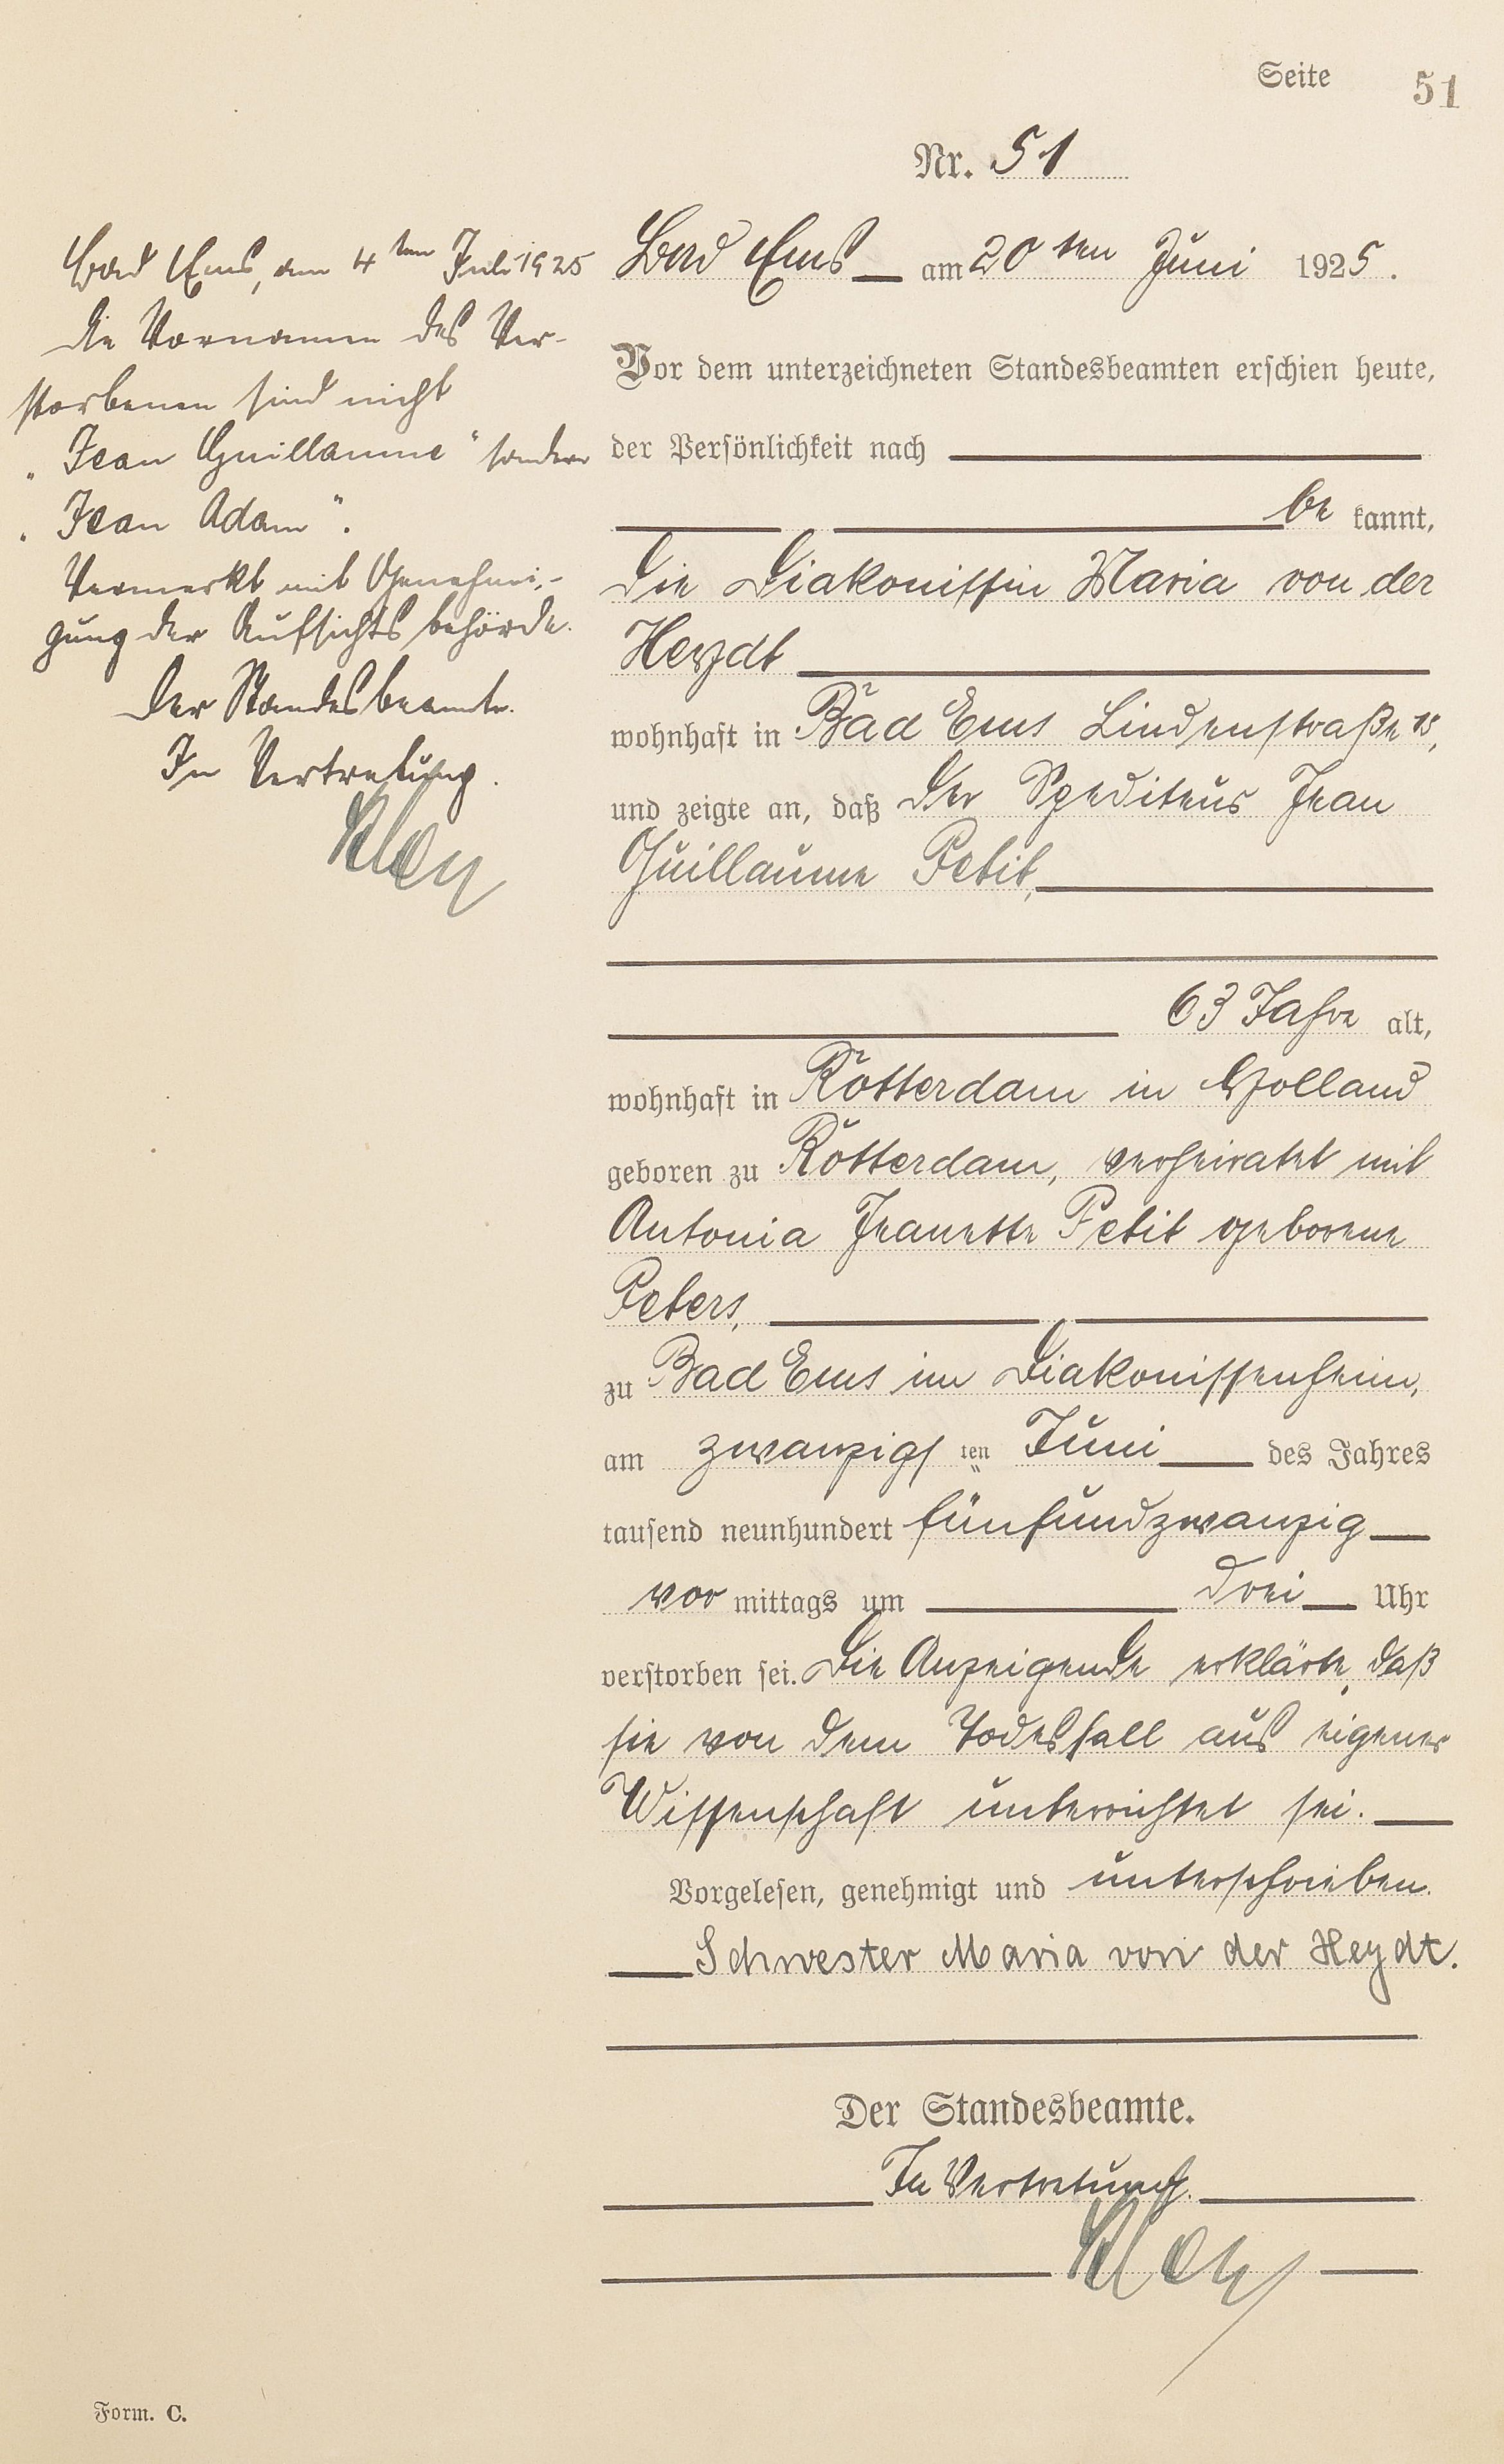 Seite 51
Nr. 51
Bad Ems, am 4ten Juli 1925
Die Vornamen des Ver-
storbenen sind nicht
„Jean Guillaume" sondern
„Jean Adam".
Vermerkt mit Genehmi-
gung der Aufsichtsbehörde.
Der Standesbeamte.
In Vertretung.
Bad Ems am 20ten Juni 1925.
Vor dem unterzeichneten Standesbeamten erschien heute,
der Persönlichkeit nach
be kannt,
die Diakonissin Maria von der
Heydt
wohnhaft in Bad Ems Lindenstraße
und zeigte an, daß der Spediteur Jean
Guillaume Petit,
63 Jahre alt,
wohnhaft in Rotterdam in Holland
geboren zu Rotterdam, verheiratet mit
Antonia Jeanette Petit geborene
Peters,
zu Bad Ems im Diakonissenheim,
am zwanzigsten Juni des Jahres
tausend neunhundert fünfundzwanzig
vor mittags um drei Uhr
verstorben sei. Die Anzeigende erklärte, daß
sie von dem Todesfall aus eigener
Wissenschaft unterrichtet sei.
Vorgelesen, genehmigt und unterschrieben.
Schwester Maria von der Heydt.
Der Standesbeamte.
In Vertretung.
Form. C.